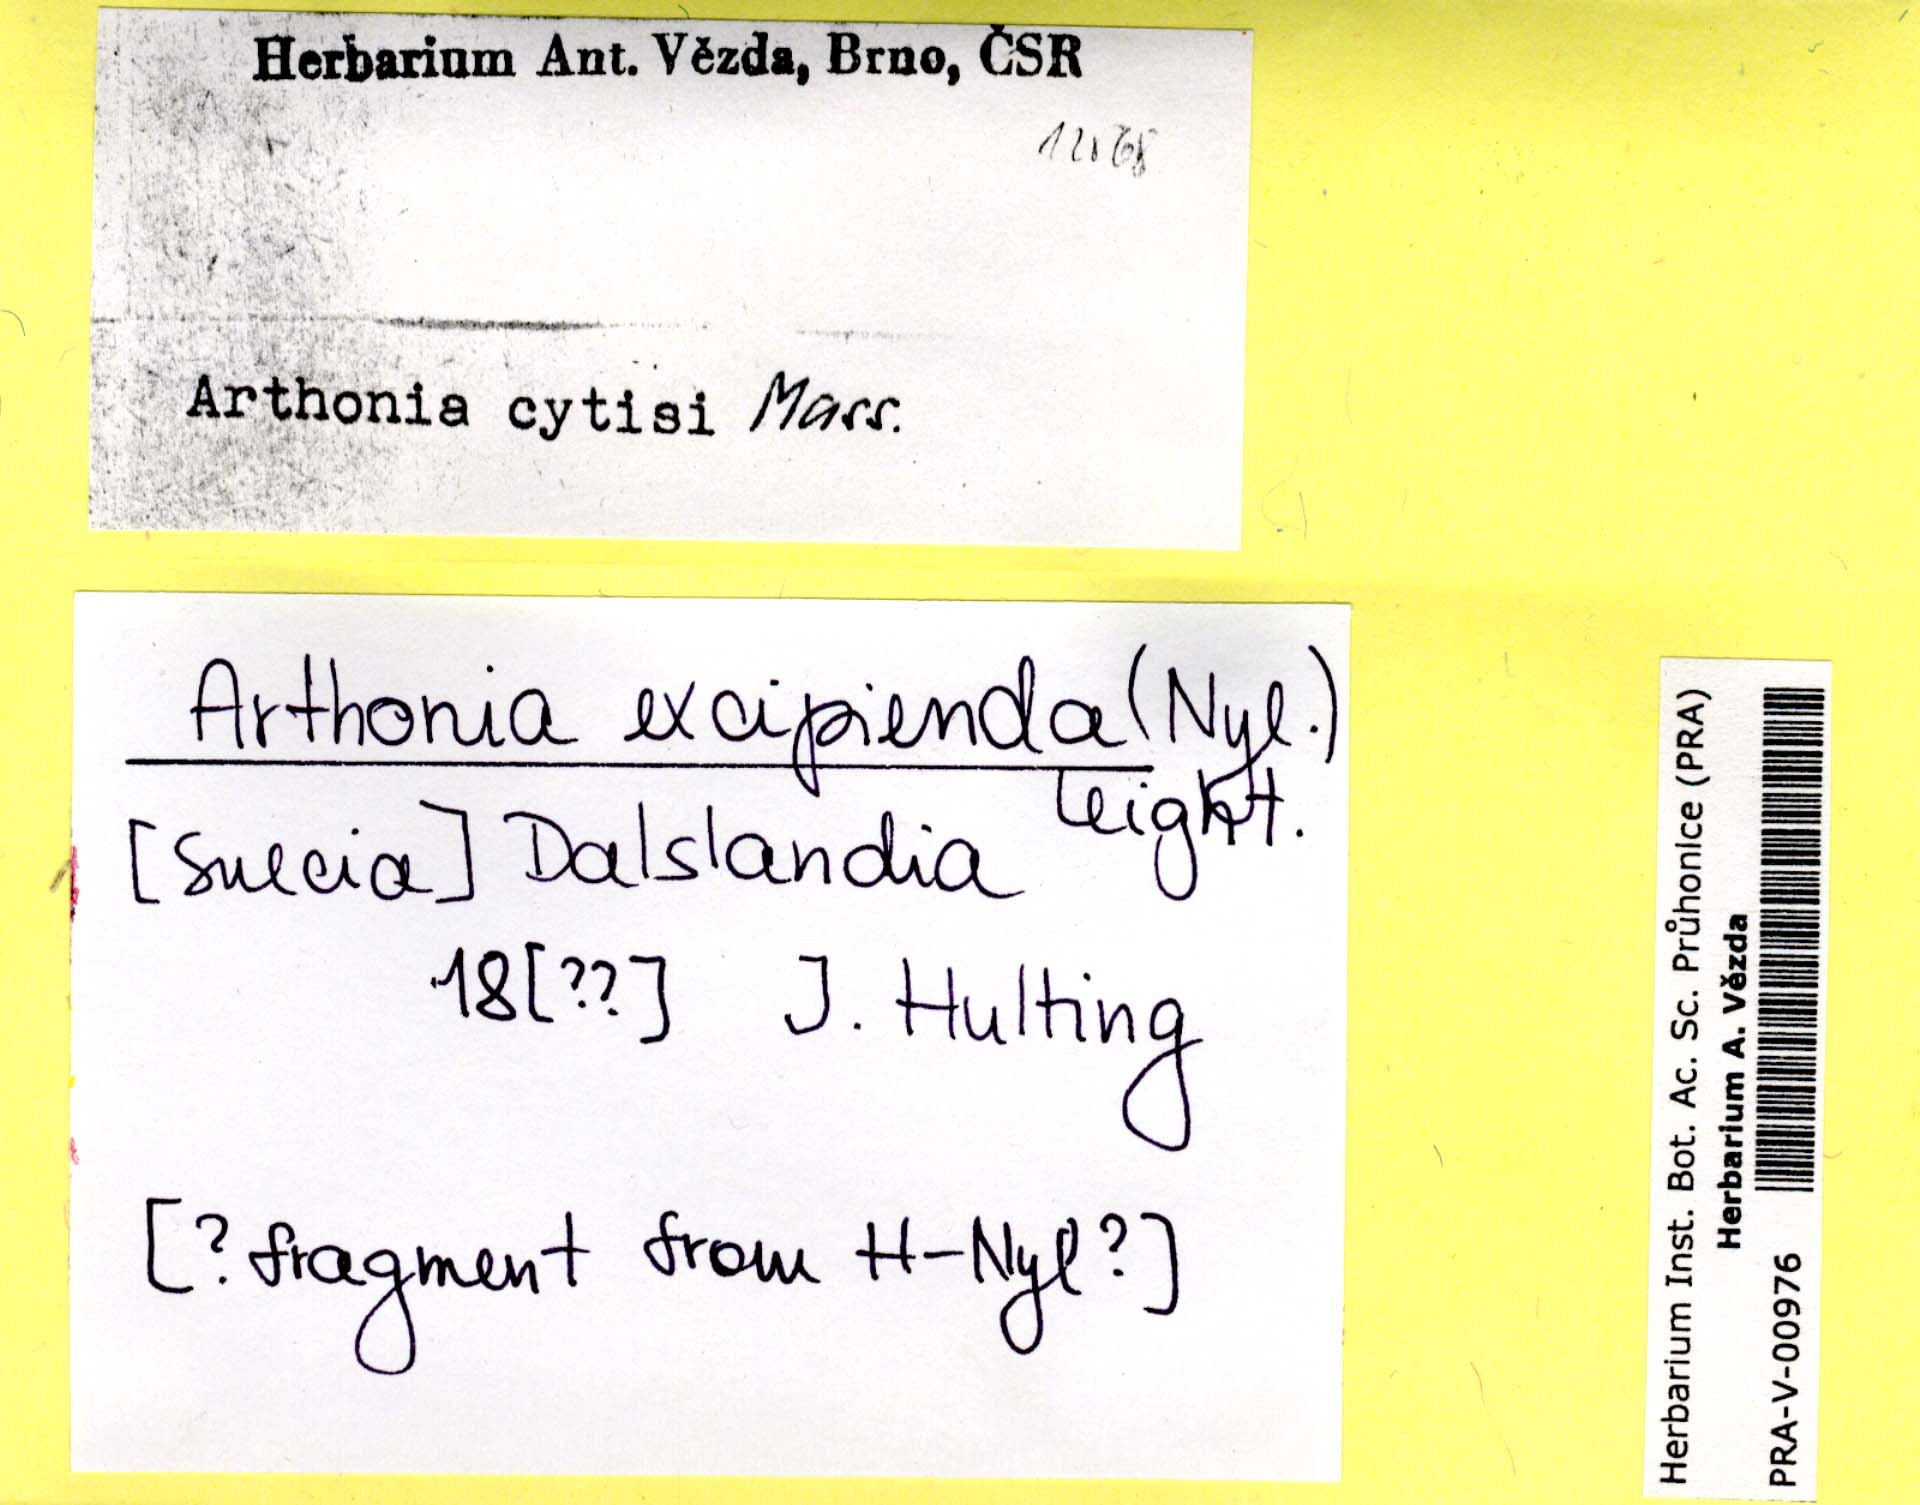 Herbarium Ant. Vězda, Brno, ČSR
Arthonia cytisi Mass.
Arthonia excipienda (Nyl.)
Leight.
[Suecia] Dalslandia
18[??] J. Hulting
[? fragment from H-Nyl?]
Herbarium Inst. Bot. Ac. Sc. Průhonice (PRA)
Herbarium A. Vězda
PRA-V-00976